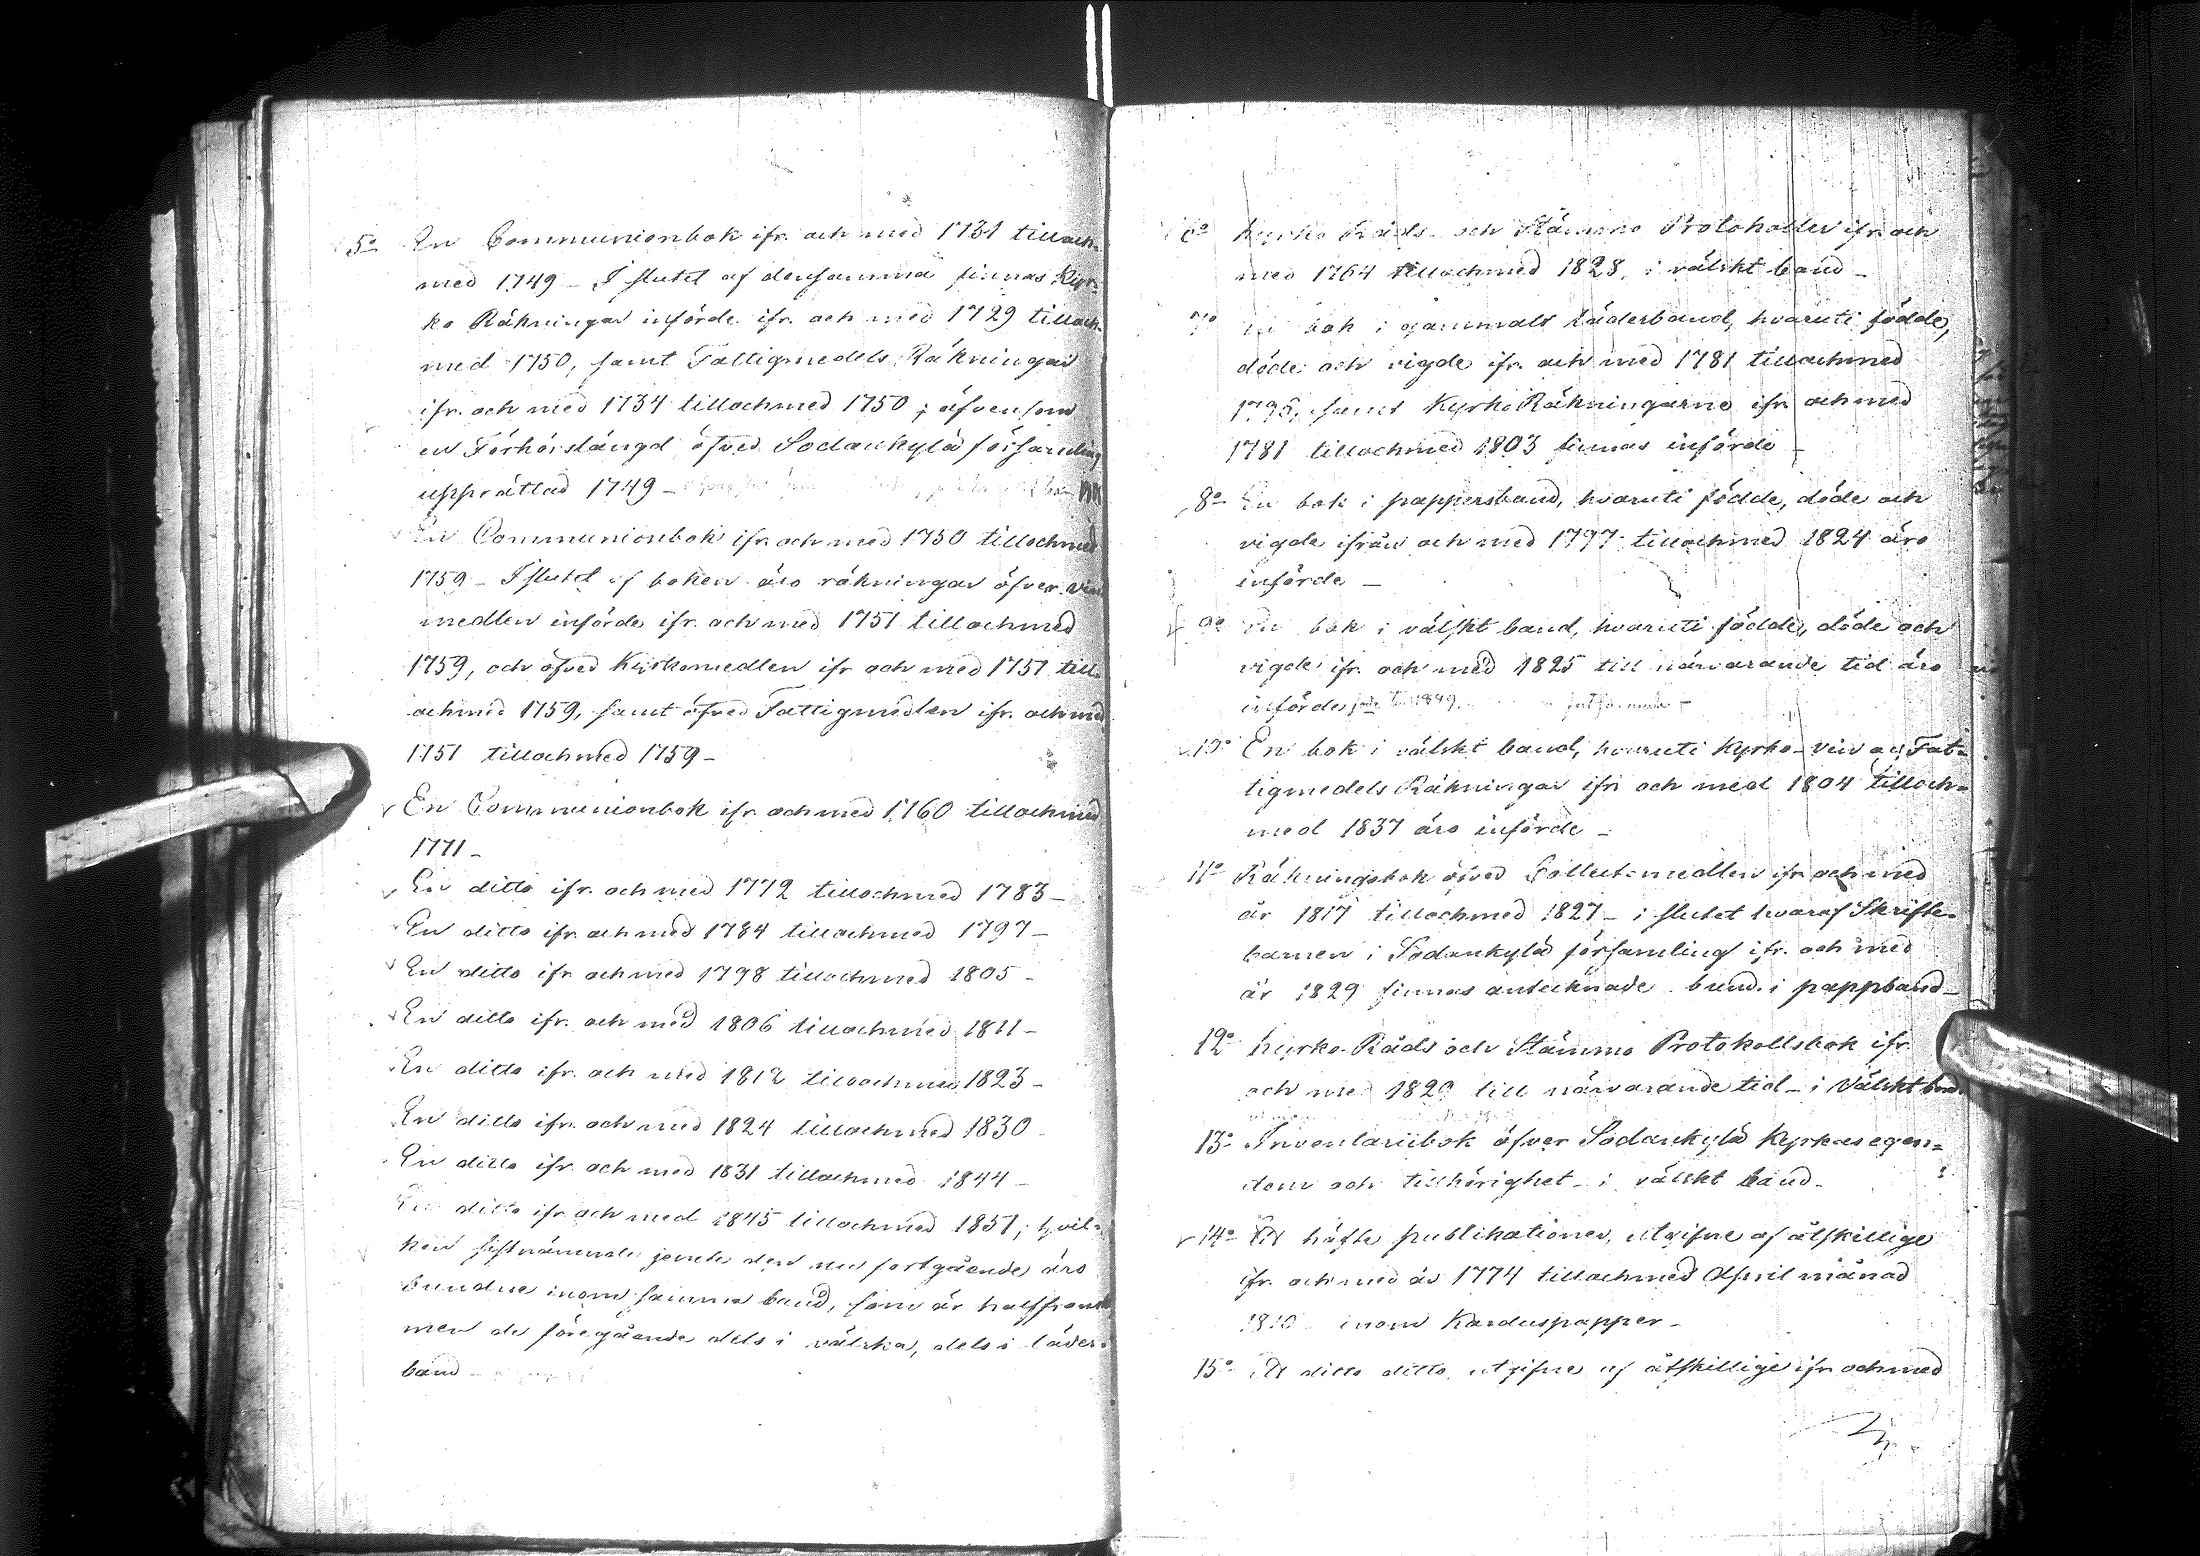 5o En Communionbok ifr. och med 1731 tilloch-
med 1749 - I slutet af densamma finnas Kyr-
ko Räkningar införde ifr. och med 1729 tilloch-
med 1750, samt Fattigmedels Räkningar
ifr. och med 1734 tillochmed 1750; äfvensom
en Förhörslängd öfver Sodankylä församling
upprättad 1749 -
En Communionbok ifr. och med 1750 tillochmed
1759 - I slutet af boken äro räkningar öfver vin
medlen införde ifr. och med 1751 tillochmed
1759, och öfver Kyrkomedlen ifr och med 1751 till-
ochmed 1759, samt öfver Fattigmedlen ifr. och med
1751 tillochmed 1759 -
En Communionbok ifr. och med 1760 tillochmed
1771 -
En ditto ifr. och med 1772 tillochmed 1783 -
En ditto ifr. och med 1784 tillochmed 1797 -
En ditto ifr. och med 1798 tillochmed 1805 -
En ditto ifr. och med 1806 tillochmed 1811 -
En ditto ifr. och med 1812 tillochmed 1823 -
En ditto ifr. och med 1824 tillochmed 1830
En ditto ifr. och med 1831 tillochmed 1844 -
En ditto ifr och med 1845 tillochmed 1851; hvil-
ken sistnämnde jemte den nu fortgående äro
bundne inom samma band, som är halffranskt
men de föregående dels i välska, dels i läder-
band -
6o Kyrko Råds och Stämmo Protokoller ifr. och
med 1764 tillochmed 1828, i välskt band -
7o En bok i gammalt läderband, hvaruti födde,
döde och vigde ifr. och med 1781 tillochmed
1796, samt Kyrko Räkningarne ifr. och med
1781 tillochmed 1803 finnas införde -
8o En bok i pappersband, hvaruti födde, döde och
vigde ifrån och med 1797 tillochmed 1824 äro
införde -
9o En bok i välskt band, hvaruti födde, döde och
vigde ifr. och med 1825 till närvarande tid äro
införde 1849
10o En bok i välskt band, hvaruti Kyrko- vin och Fat-
tigmedels Räkningar ifr och med 1804 tilloch-
med 1837 äro införde -
11o Räkningsbok öfver Collectmedlen ifr och med
år 1817 tillochmed 1827 - i slutet hvaraf Skrifte-
barnen i Sodankylä församling ifr. och med
år 1829 finnas antecknade - bund. i pappband -
12o Kyrko-Råds och Stämmo Protokollsbok ifr.
och med 1829 till närvarande tid - i välskt band
13o Inventariibok öfver Sodankylä Kyrkas egen-
dom och tillhörighet - i välskt band -
14o Ett häfte publikationer, utgifne af åtskillige
ifr. och med år 1774 tillochmed April månad
1810 inom Karduspapper -
15o Ett ditto ditto, utgifne af åtskillige ifr. och med